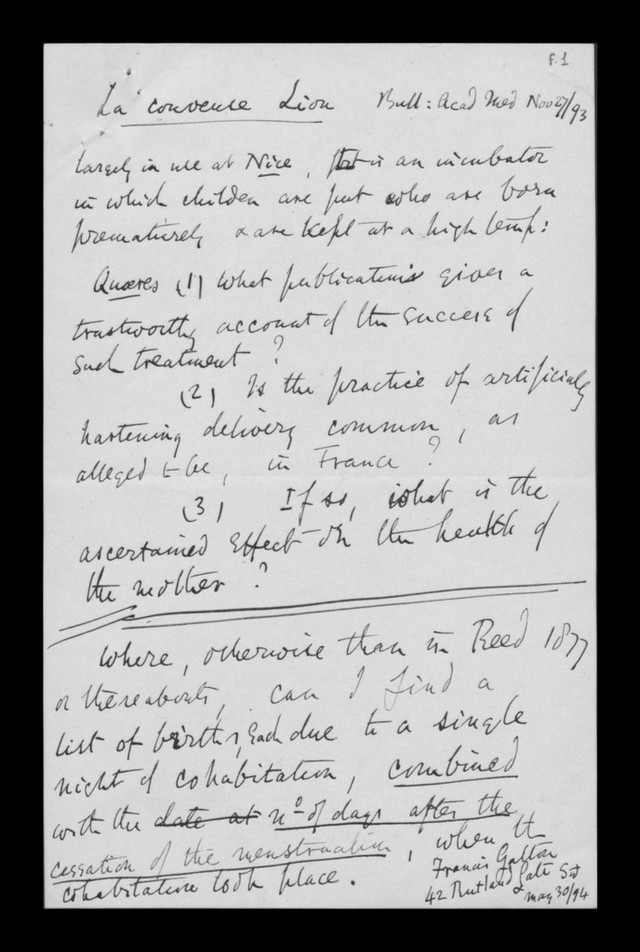 F.1
La couveuse Lion Bull: Acad Med Nov 27/93
largely in use at Nice, that is an incubator
in which children are put who are born
prematurely & are kept at a high temp:
Quæres (1) What publication gives a
trustworthy account of the success of
such treatment ?
(2) Is the practice of artificially
hastening delivery common, as
alleged to be, in France ?
(3) If so, what is the
ascertained effect on the health of
the mother ?
Where, otherwise than in Reed 1877
or thereabouts, can I find a
list of births, each due to a single
night of cohabitation, combined
with the date at no of days after the
cessation of the menstruation, when the
cohabitation took place.
Francis Galton
42 Rutland Gate SW
May 30/94